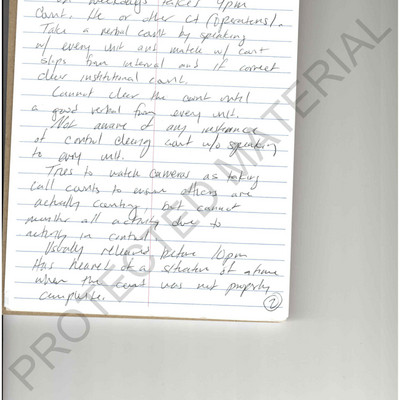 on weekdays takes 4pm
Count. He or other Lt (Operations).
Take a verbal count by speaking
w/ every unit and match w/ count
slips from internal and if correct
clear institutional count.
Cannot clear the count until
a good verbal from every unit.
Not aware of any instance
of control clearing count w/o speaking
to every unit.
Tries to watch cameras as taking
call counts to ensure others are
actually counting, but cannot
monitor all activity due to
activity in control
Usually relieved before 10pm
Has heard of a situation of a time
when the count was not properly
complete.
2
PROTECTED MATERIAL